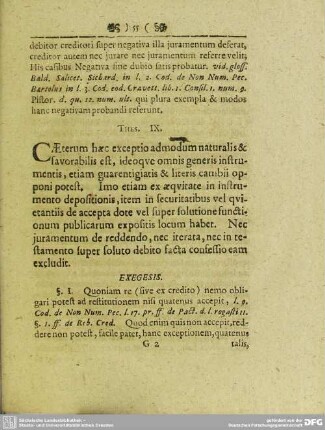 ) 55 (
debitor creditori super negativa illa juramentum deferat,
creditor autem nec jurare nec juramentum referre velit,
His casibus Negativa sine dubio satis probatur. vid. gloss.
Bald. Salicet. Sichard. in l. 2. Cod. de Non Num. Pec.
Bartolus in l. 3. Cod. eod. Cravett. lib. 1. Consil. 1. num. 9.
Pistor. d. qu. 12. num. ult. qui plura exempla & modos
hanc negativam probandi referunt.
THES. IX.
CÆterum hæc exceptio admodum naturalis &
favorabilis est, ideoqve omnis generis instru-
mentis, etiam guarentigiatis & literis cambii oppo-
ni potest, Imo etiam ex æqvitate in instru-
mento depositionis, item in securitatibus vel qvi-
etantiis de accepta dote vel super solutione functi-
onum publicarum expositis locum habet. Nec
juramentum de reddendo, nec iterata, nec in te-
stamento super soluto debito facta confessio eam
excludit.
EXEGESIS.
§. 1. Quoniam re (sive ex credito) nemo obli-
gari potest ad restitutionem nisi quatenus accepit, l. 9.
Cod. de Non Num. Pec. l. 17. pr. ff. de Pact. d. l. rogasti 11.
§. 1. ff. de Reb. Cred. Quod enim quis non accepit, red-
dere non potest, facile patet, hanc exceptionem, quatenus
G 2 talis,